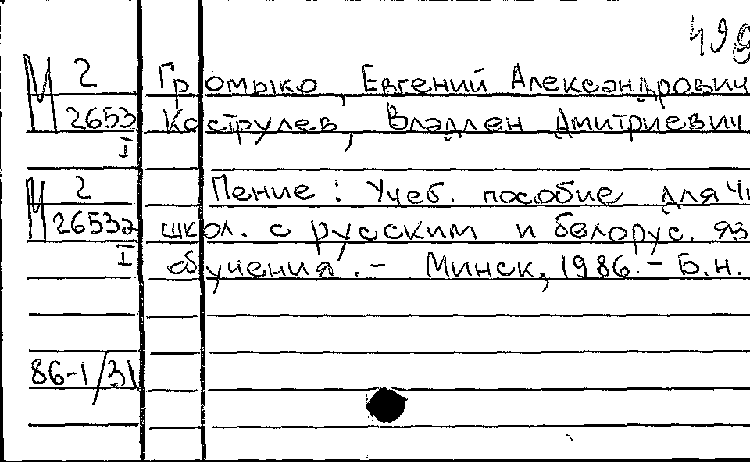 498
М 2 Громыко, Евгений Александрович
2653 Кострулев, Владлен Дмитриевич
I
М 2 Пение : Учеб. пособие для
2653а школ. с русским и белорус. яз
I обучения. – Минск, 1986. – Б.н.
86-1/31